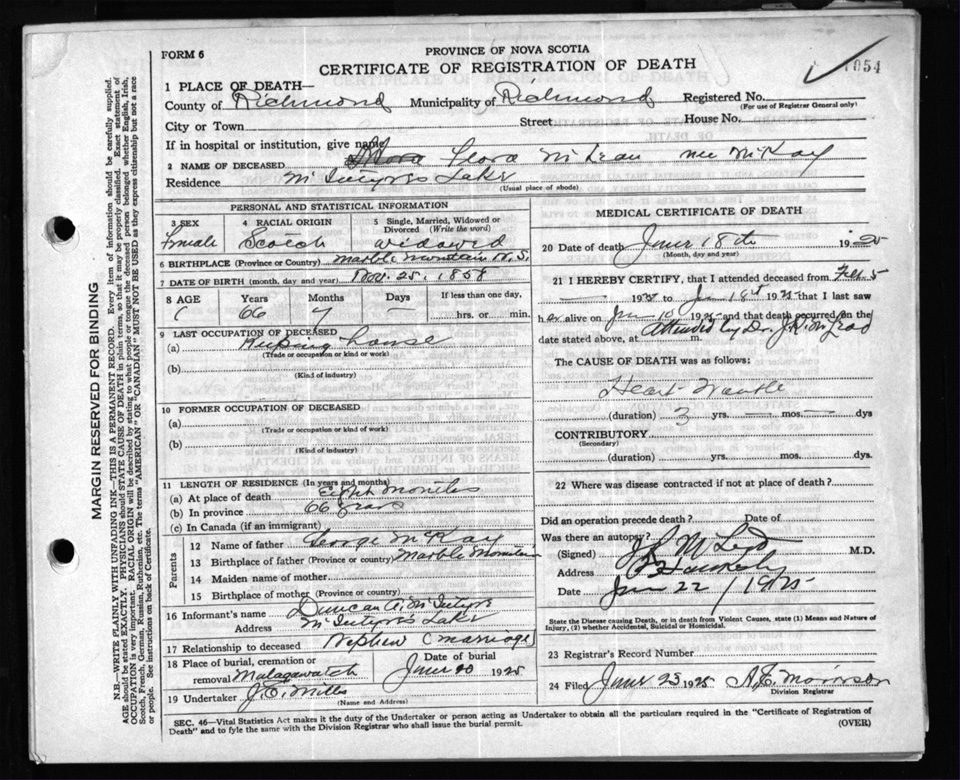 FORM 6
PROVINCE OF NOVA SCOTIA
CERTIFICATE OF REGISTRATION OF DEATH
1054
1 PLACE OF DEATH—
County of Richmond Municipality of Richmond Registered No.
(For use of Registrar General only)
City or Town Street House No.
If in hospital or institution, give name
2 NAME OF DECEASED Flora McLean nee McKay
Residence McIntyres Lake
(Usual place of abode)
PERSONAL AND STATISTICAL INFORMATION
3 SEX Female
4 RACIAL ORIGIN Scotch
5 Single, Married, Widowed or Divorced (Write the word) widowed
6 BIRTHPLACE (Province or Country) Marble Mountain N.S.
7 DATE OF BIRTH (month, day and year) Nov. 25. 1858
8 AGE Years 66 Months 7 Days — If less than one day, hrs. or min.
9 LAST OCCUPATION OF DECEASED
(a) Keeping house
(Trade or occupation or kind or work)
(b)
(Kind of industry)
10 FORMER OCCUPATION OF DECEASED
(a)
(Trade or occupation or kind of work)
(b)
(Kind of industry)
11 LENGTH OF RESIDENCE (In years and months)
(a) At place of death Eight months
(b) In province 66 years
(c) In Canada (if an immigrant)
Parents
12 Name of father George McKay
13 Birthplace of father (Province or country) Marble Mountain
14 Maiden name of mother
15 Birthplace of mother (Province or Country)
16 Informant's name Duncan A. McIntyre
Address McIntyres Lake
17 Relationship to deceased Nephew (marriage)
18 Place of burial, cremation or removal Malagawatch Date of burial June 20 1925
19 Undertaker J.E. Mills
(Name and Address)
MEDICAL CERTIFICATE OF DEATH
20 Date of death June 18th 1925
(Month, day and year)
21 I HEREBY CERTIFY, that I attended deceased from Feb. 5
1925 to Jun 18th 1925 that I last saw
her alive on Jun 10 1925 and that death occurred on the
date stated above, at m. Attended by Dr.
The CAUSE OF DEATH was as follows:
Heart
(duration) 3 yrs. — mos. — dys
CONTRIBUTORY
(Secondary)
(duration) yrs. mos. dys.
22 Where was disease contracted if not at place of death?
Did an operation precede death? Date of
Was there an autopsy?
(Signed) M.D.
Address
Date June 22 / 1925
State the Disease causing Death, or in death from Violent Causes, state (1) Means and Nature of Injury, (2) whether Accidental, Suicidal or Homicidal.
23 Registrar's Record Number
24 Filed June 23 1925 A.E. Morrison
Division Registrar
SEC. 46—Vital Statistics Act makes it the duty of the Undertaker or person acting as Undertaker to obtain all the particulars required in the "Certificate of Registration of
Death" and to fyle the same with the Division Registrar who shall issue the burial permit.
(OVER)
MARGIN RESERVED FOR BINDING
N.B.—WRITE PLAINLY WITH UNFADING INK—THIS IS A PERMANENT RECORD. Every item of information should be carefully supplied.
AGE should be stated EXACTLY. PHYSICIANS should STATE CAUSE OF DEATH in plain terms, so that it may be properly classified. Exact statement of
OCCUPATION is very important. RACIAL ORIGIN will be described by stating to what people or tongue the deceased person belonged whether English, Irish,
Scotch, French, German, Russian, Ruthenian, etc. The terms "AMERICAN" OR "CANADIAN" MUST NOT BE USED as they express citizenship but not a race
or people. See instructions on back of Certificate.